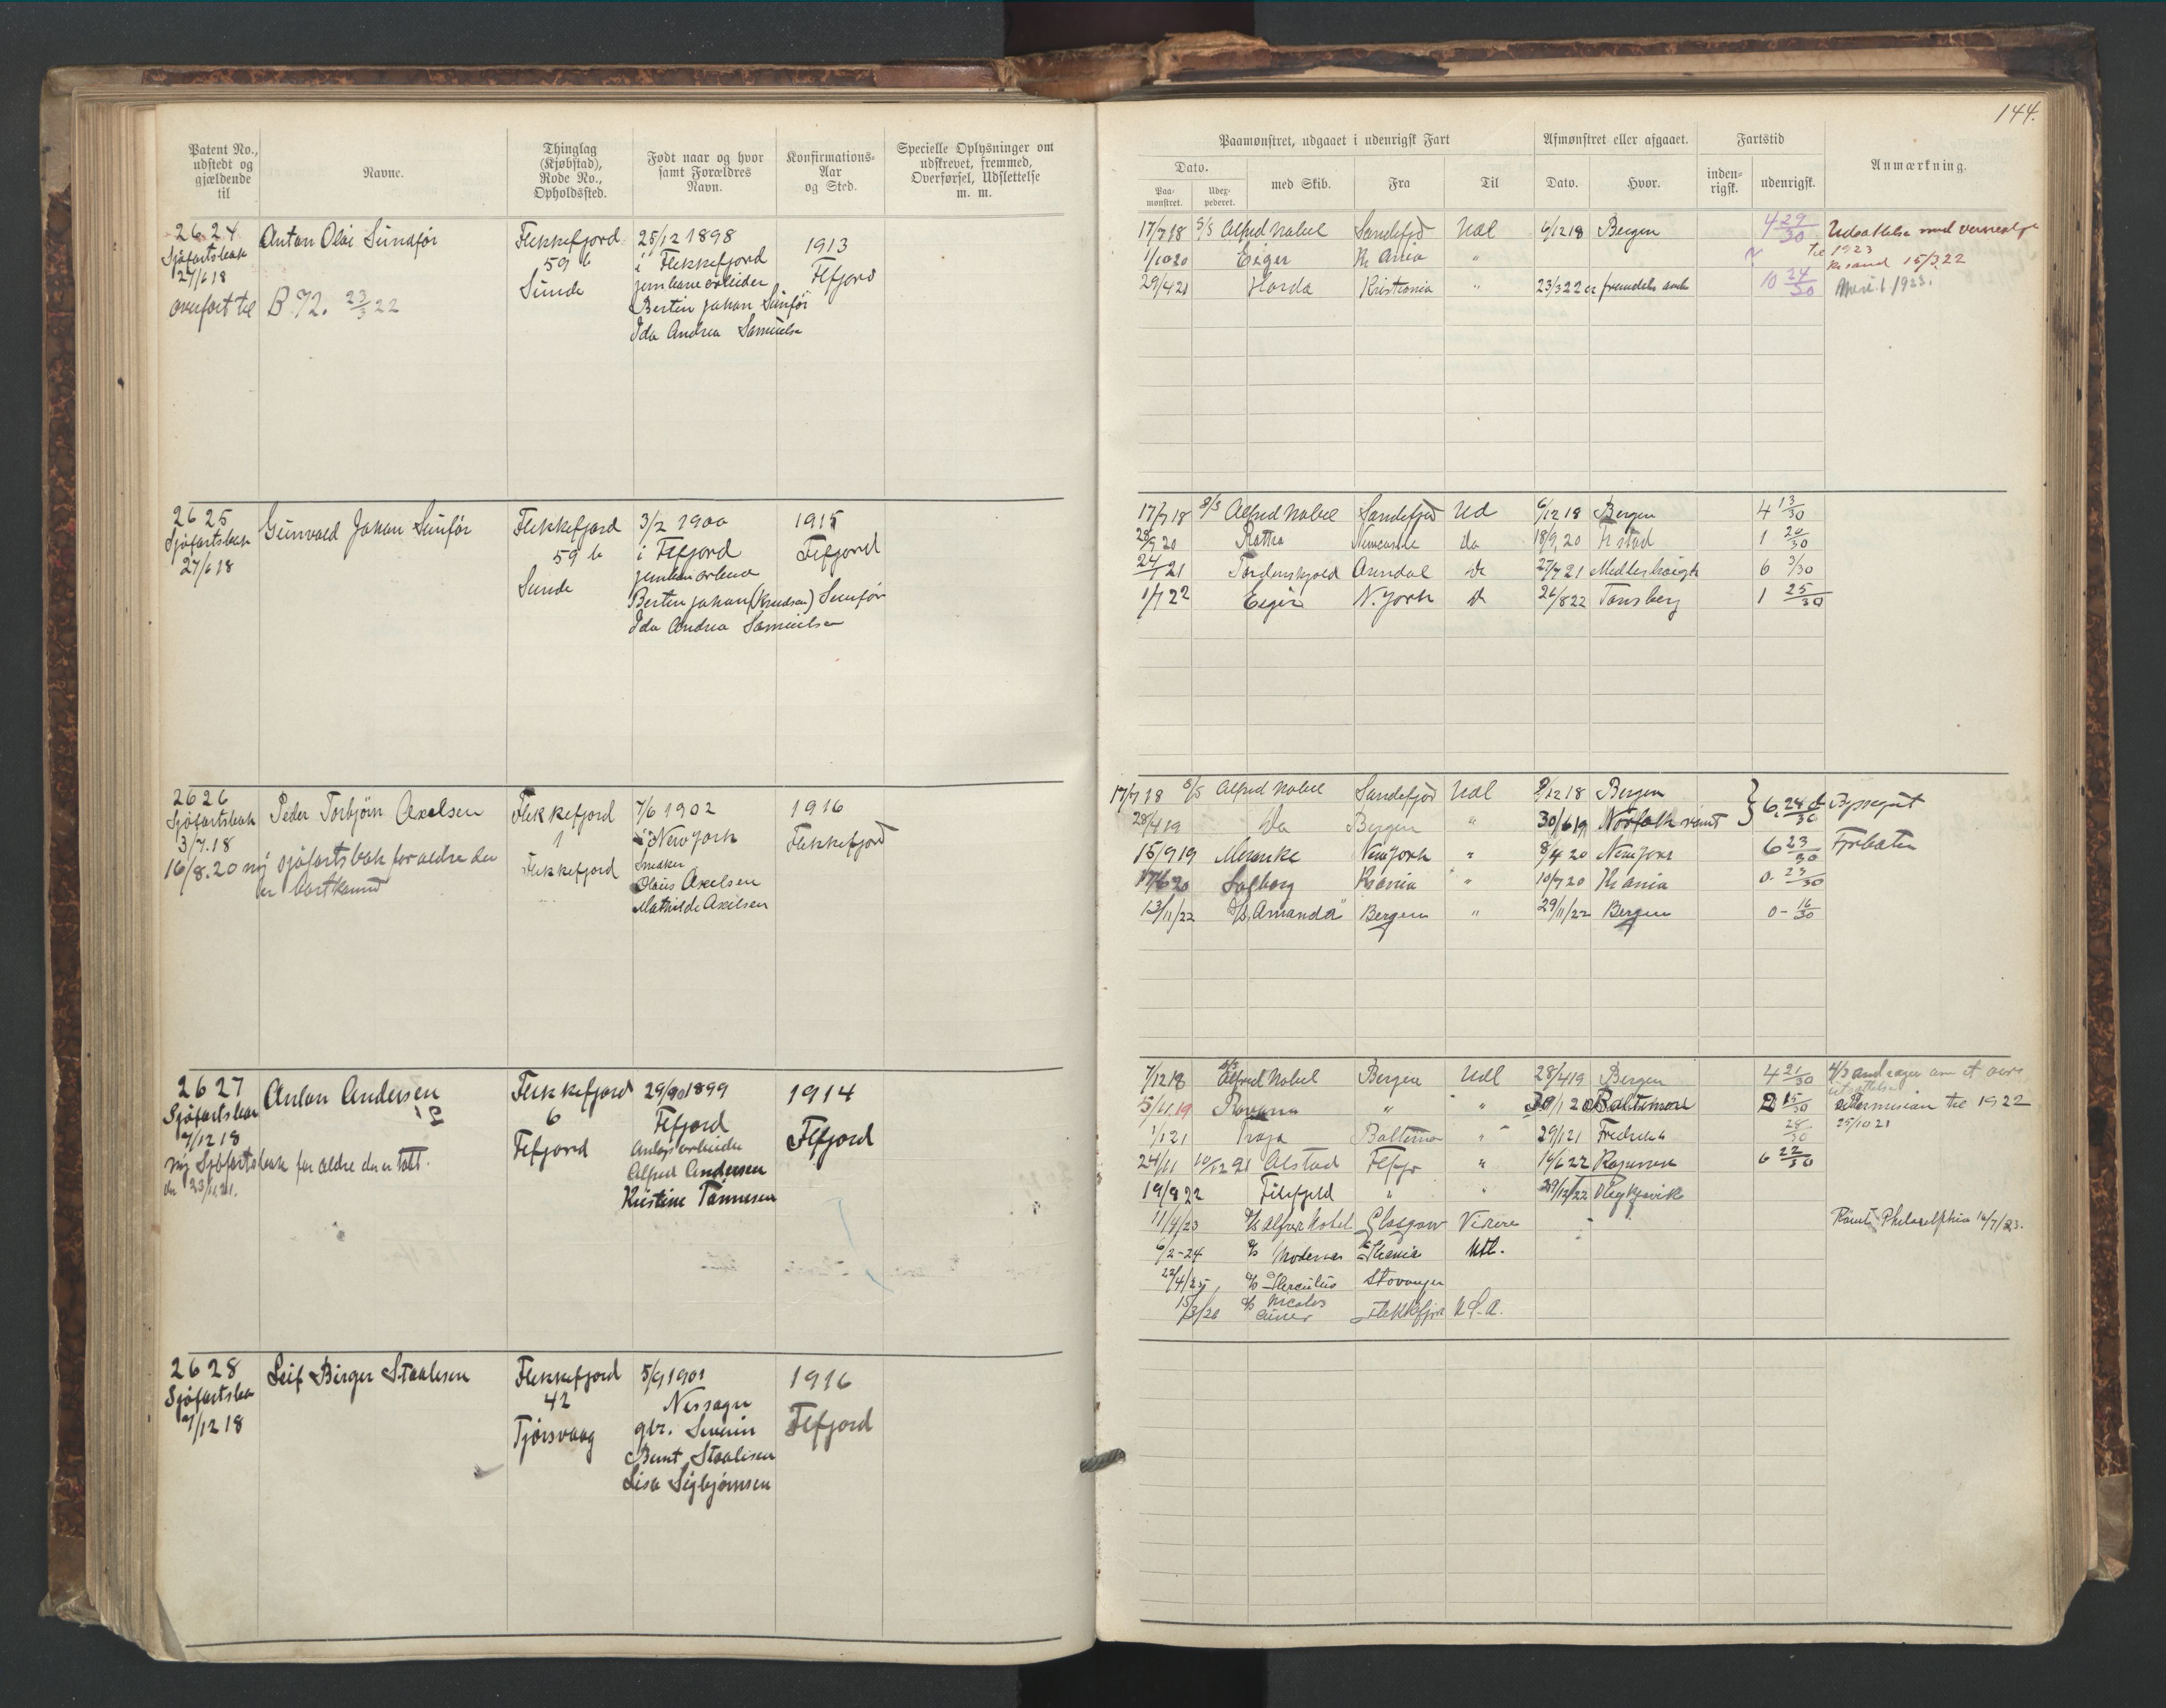 144.
Patent No., udstedt og gjældende til
Navne.
Thinglag (Kjøbstad), Rode No., Opholdssted.
Født naar og hvor samt Forældres Navn.
Konfirmations-Aar og Sted.
Specielle Oplysninger om udskrevet, fremmed, Overførsel, Udslettelse m. m.
Paamønstret, udgaaet i udenrigsk Fart
Afmønstret eller afgaaet.
Fartstid
Anmærkning.
Dato.
med Skib.
Fra
Til
Dato.
Hvor.
inden-rigsk.
udenrigsk.
Paa-mønstret.
Udex-pederet.
2624 Anton Olai Sundfør Flekkefjord 25/12 1898 1913
Sjøfartsbok 59 b i Flekkefjord Flfjord
27/6 18 Sunde jernbanearbeider
overført til B 72. 23/3 22 Bertin Johan Sunfør
Ida Andrea Samuels
17/7 18 S/S Alfred Nobel Sandefjd Udl 6/12 18 Bergen 4 29/30 Udsættelse med verneplgt
til 1923
1/10 20 Eiger Kr Ania " Krsand 15/3 22
29/4 21 Horda Kristiania " 23/3 22 er fremdeles omb 10 24/30 1923.
2625 Gunvald Johan Sunfør Flekkefjord 3/2 1900 1915
Sjøfartsbok 59 b i Flfjord Flfjord
27/6 18 Sunde
Bertin Johan (Knudsen) Sunfør
Ida Andrea Samuelsen
17/7 18 S/S Alfred Nobel Sandefjd Ud 6/12 18 Bergen 4 13/30
Newcastle do 18/9 20 Fr stad 1 20/30
24/1 21 Tordenskjold Arendal do 27/7 21 Middlesbro 6 3/30
1/7 22 Eger N. York do 26/8 22 Tønsberg 1 25/30
2626 Peder Torbjørn Axelsen Flekkefjord 7/6 1902 1916
Sjøfartsbok 1 i New York Flekkefjord
3/7.18 Flekkefjord Snekker
16/8.20 ny sjøfartsbok for ældre der Olaus Axelsen
er bortkommet Mathilde Axelsen
17/7 18 S/S Alfred Nobel Sandefjord Udl 7/12 18 Bergen 6 24/30
28/4 19 Do Bergen " 30/6 19 Norfolk rømt
15/9 19 New York " 8/4 20 New York 6 23/30
17/6 20 Solborg Krania " 10/7 20 Krania 0 - 23/30
13/11/22 S/S "Amanda" Bergen " 29/11/22 Bergen 0 - 16/30
2627 Anton Andersen Flekkefjord 29/ 1899 1914
Sjøfartsbok 6 Flfjord Flfjord
7/12 18 Flfjord Anlægsarbeider
ny Sjøfartsbok for ældre der er tabt. Alfred Andersen
den 23/11 21. Kristine Tønnesen
7/12 18 S/S Alfred Nobel Bergen Udl 28/4 19 Bergen 4 21/30
5/11.19 " " 30/1 20 Baltimore 2 15/30 Permision til 1922
1/1 21 Troja " 29/1 21 Fredrikst 28/30 25/10 21
24/11 10/12 21 Alstad Flfjo " 6 22/30
19/8 22 Filefjeld " " 29/12/22 Reykjavik
11/4/23 S/S Alfred Nobel Glasgow Rømt Philadelphia 16/7/23.
6/2-24 Krania Utl.
22/4/25 S/S Herculus Stavanger
15/3/26 Flekkefjord U.S.A.
2628 Leif Birger Staalesen Flekkefjord 5/9 1901 1916
Sjøfartsbo 42 Flfjord
7/12 18 Tjørsvaag gbr. Severin
Bernt Staalesen
Lisa Sigbjørnsen